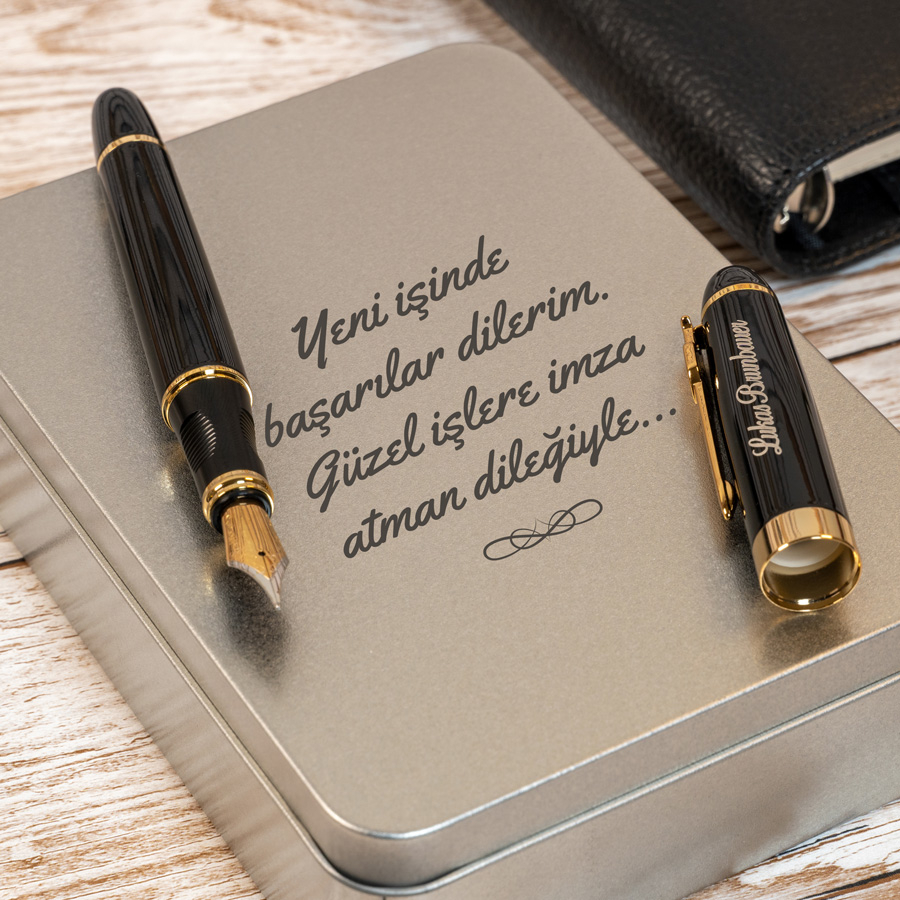 Yeni işinde
başarılar dilerim.
Güzel işlere imza
atman dileğiyle...
Lukas Brumbauer